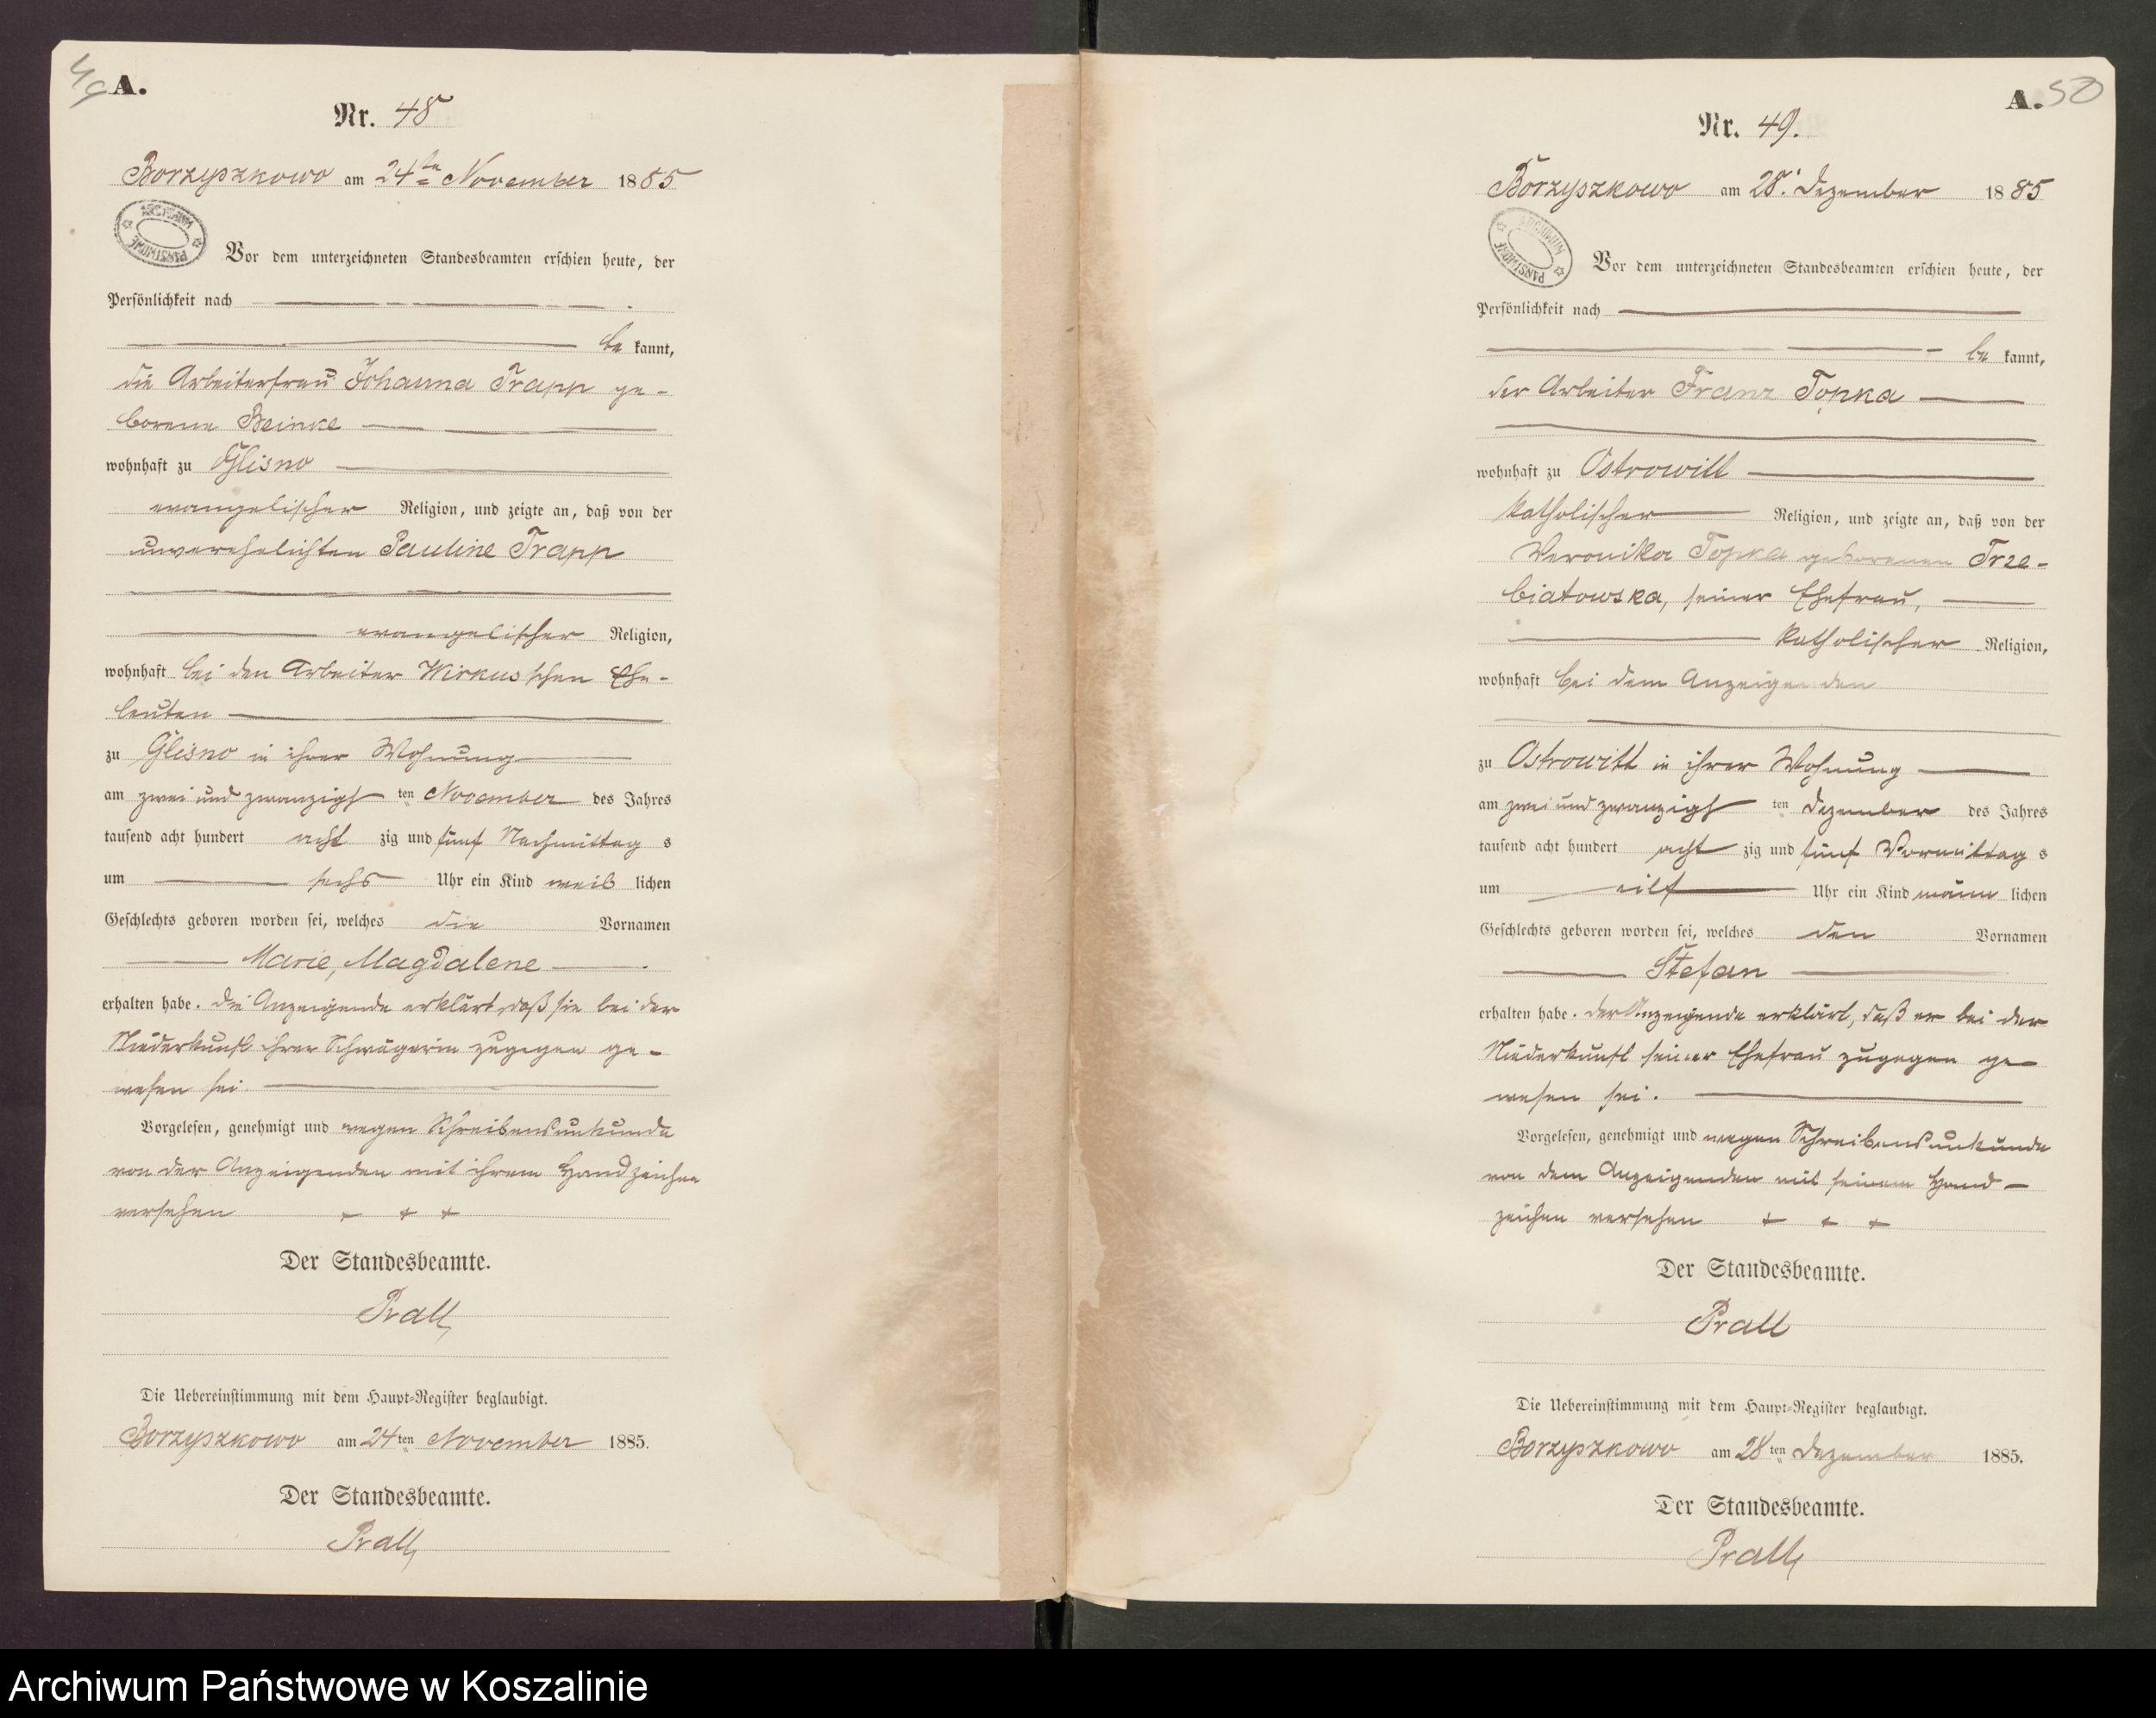 49 A.
Nr. 48
Borzyszkowo am 24ten November 1885
ARCHIWUM PAŃSTWOWE
Vor dem unterzeichneten Standesbeamten erschien heute, der
Persönlichkeit nach
be kannt,
die Arbeiterfrau Johanna Trapp ge-
borene Beinke
wohnhaft zu Glisno
evangelischer Religion, und zeigte an, daß von der
unverehelichten Pauline Trapp
evangelischer Religion,
wohnhaft bei den Arbeiter Wirkus'schen Ehe-
leuten
zu Glisno in ihrer Wohnung
am zwei und zwanzigst ten November des Jahres
tausend acht hundert acht zig und fünf Nachmittag s
um sechs Uhr ein Kind weib lichen
Geschlechts geboren worden sei, welches die Vornamen
Marie, Magdalene
erhalten habe. Die Anzeigende erklärt, daß sie bei der
Niederkunft ihrer Schwägerin zugegen ge-
wesen sei.
Vorgelesen, genehmigt und wegen Schreibensunkunde
von der Anzeigenden mit ihrem Handzeichen
versehen + + +
Der Standesbeamte.
Prall
Die Uebereinstimmung mit dem Haupt-Register beglaubigt.
Borzyszkowo am 24ten November 1885.
Der Standesbeamte.
Prall
A. 50
Nr. 49.
Borzyszkowo am 28. Dezember 1885
ARCHIWUM PAŃSTWOWE
Vor dem unterzeichneten Standesbeamten erschien heute, der
Persönlichkeit nach
be kannt,
der Arbeiter Franz Topka
wohnhaft zu Ostrowitt
katholischer Religion, und zeigte an, daß von der
Veronika Topka geborenen Trze-
biatowska, seiner Ehefrau,
katholischer Religion,
wohnhaft bei dem Anzeigenden
zu Ostrowitt in ihrer Wohnung
am zwei und zwanzigst ten Dezember des Jahres
tausend acht hundert acht zig und fünf Vormittag s
um eilf Uhr ein Kind männ lichen
Geschlechts geboren worden sei, welches den Vornamen
Stefan
erhalten habe. Der Anzeigende erklärt, daß er bei der
Niederkunft seiner Ehefrau zugegen ge-
wesen sei.
Vorgelesen, genehmigt und wegen Schreibensunkunde
von dem Anzeigenden mit seinem Hand-
zeichen versehen + + +
Der Standesbeamte.
Prall
Die Uebereinstimmung mit dem Haupt-Register beglaubigt.
Borzyszkowo am 28ten Dezember 1885.
Der Standesbeamte.
Prall
Archiwum Państwowe w Koszalinie